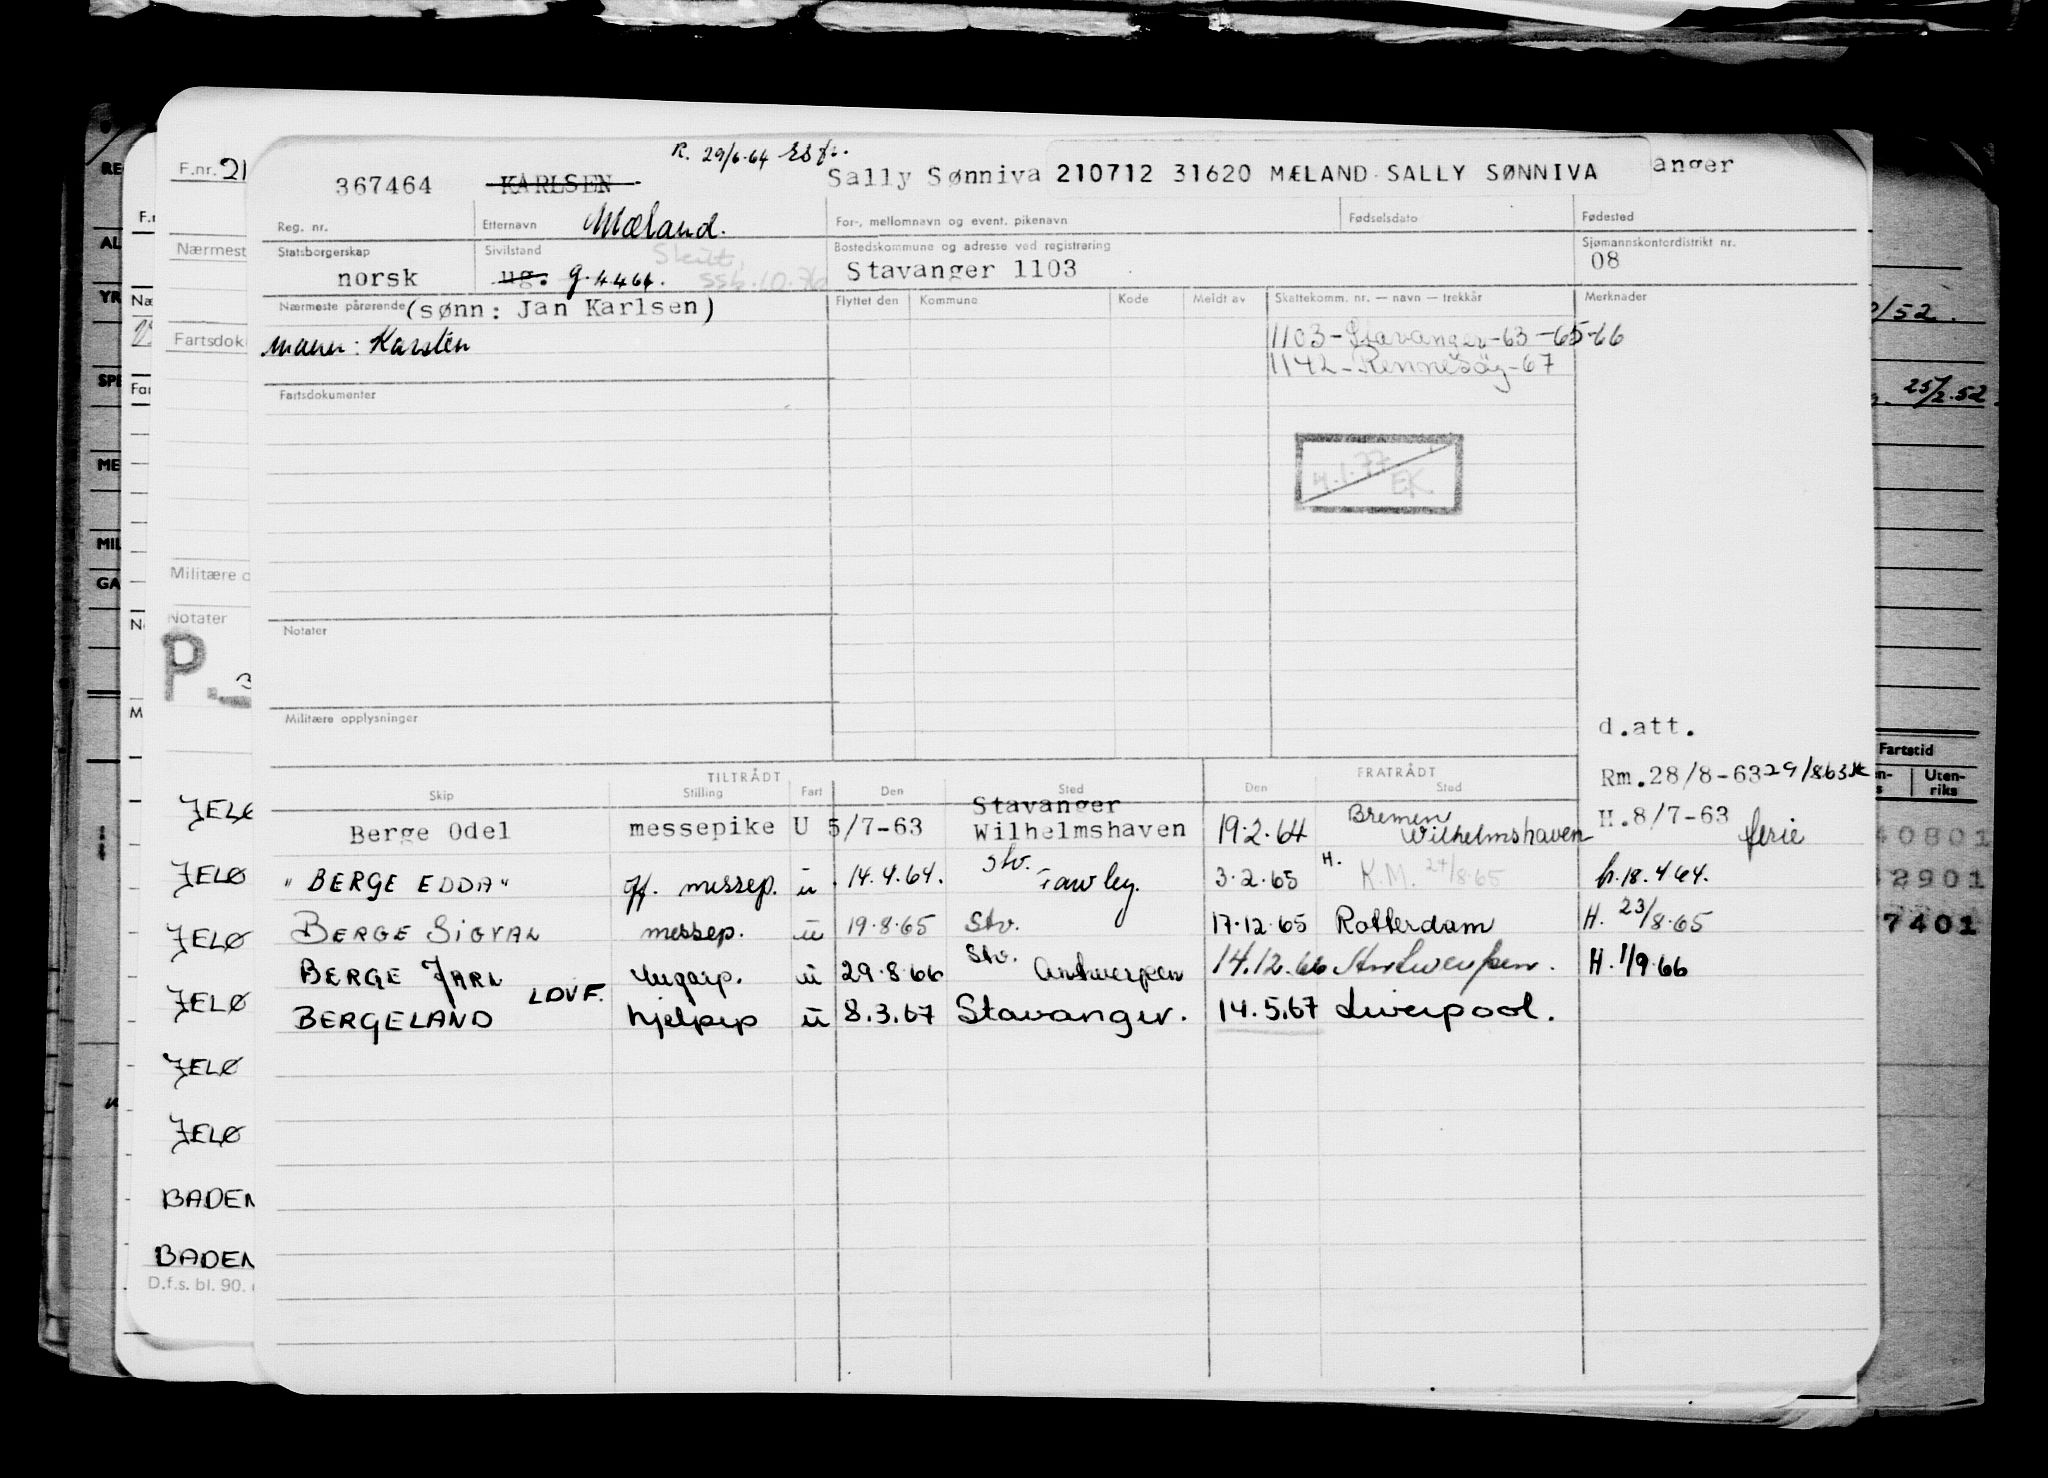 R. 29/6-64
F.nr. 21
367464 KARLSEN Sally Sønniva 210712 31620 MÆLAND SALLY SØNNIVA anger
Reg. nr. Etternavn Mæland. For-, mellomnavn og event. pikenavn Fødselsdato Fødested
Statsborgerskap Sivilstand Bostedskommune og adresse ved registrering Sjømannskontordistrikt nr.
Skilt,
norsk ug. g. 4466. ssk. 10.76 Stavanger 1103 08
Nærmeste pårørende (sønn: Jan Karlsen) Flyttet den Kommune Kode Meldt av Skattekomm. nr. — navn — trekkår Merknader
mann: Karsten 1103-Stavanger-63-65-66
1142-Rennesøy-67
Fartsdokumenter
25/2.52
4.1.77 EK
Militære o
Notater
P.
Notater
Militære opplysninger
d.att.
Fartstid
TILTRÅDT FRATRÅDT Rm.28/8-63 29/863
Skip Stilling Fart Den Sted Den Sted
Uten-
riks
Stavanger
Berge Odel messepike U 5/7-63 Wilhelmshaven 19.2.64 Bremen Wilhelmshaven H.8/7-63 ferie
40801
"BERGE EDDA" off. messep. u 14.4.64. Stv. Fawley. 3.2.65 H. K.M. 24/8.65 h.18.464.
2901
BERGE SIGVAL messep. u 19.8.65 Stv. 17.12.65 Rotterdam H. 23/8.65
7401
BERGE JARL lugarp. u 29.8.66 Stv. Antwerpen 14.12.66 Antwerpen. H. 1/9.66
BERGELAND LOVF. hjelpep u 8.3.67 Stavanger. 14.5.67 Liverpool.
JELØ
JELØ
JELØ
JELØ
JELØ
JELØ
BADEN
BADEN
D.f.s. bl. 90.